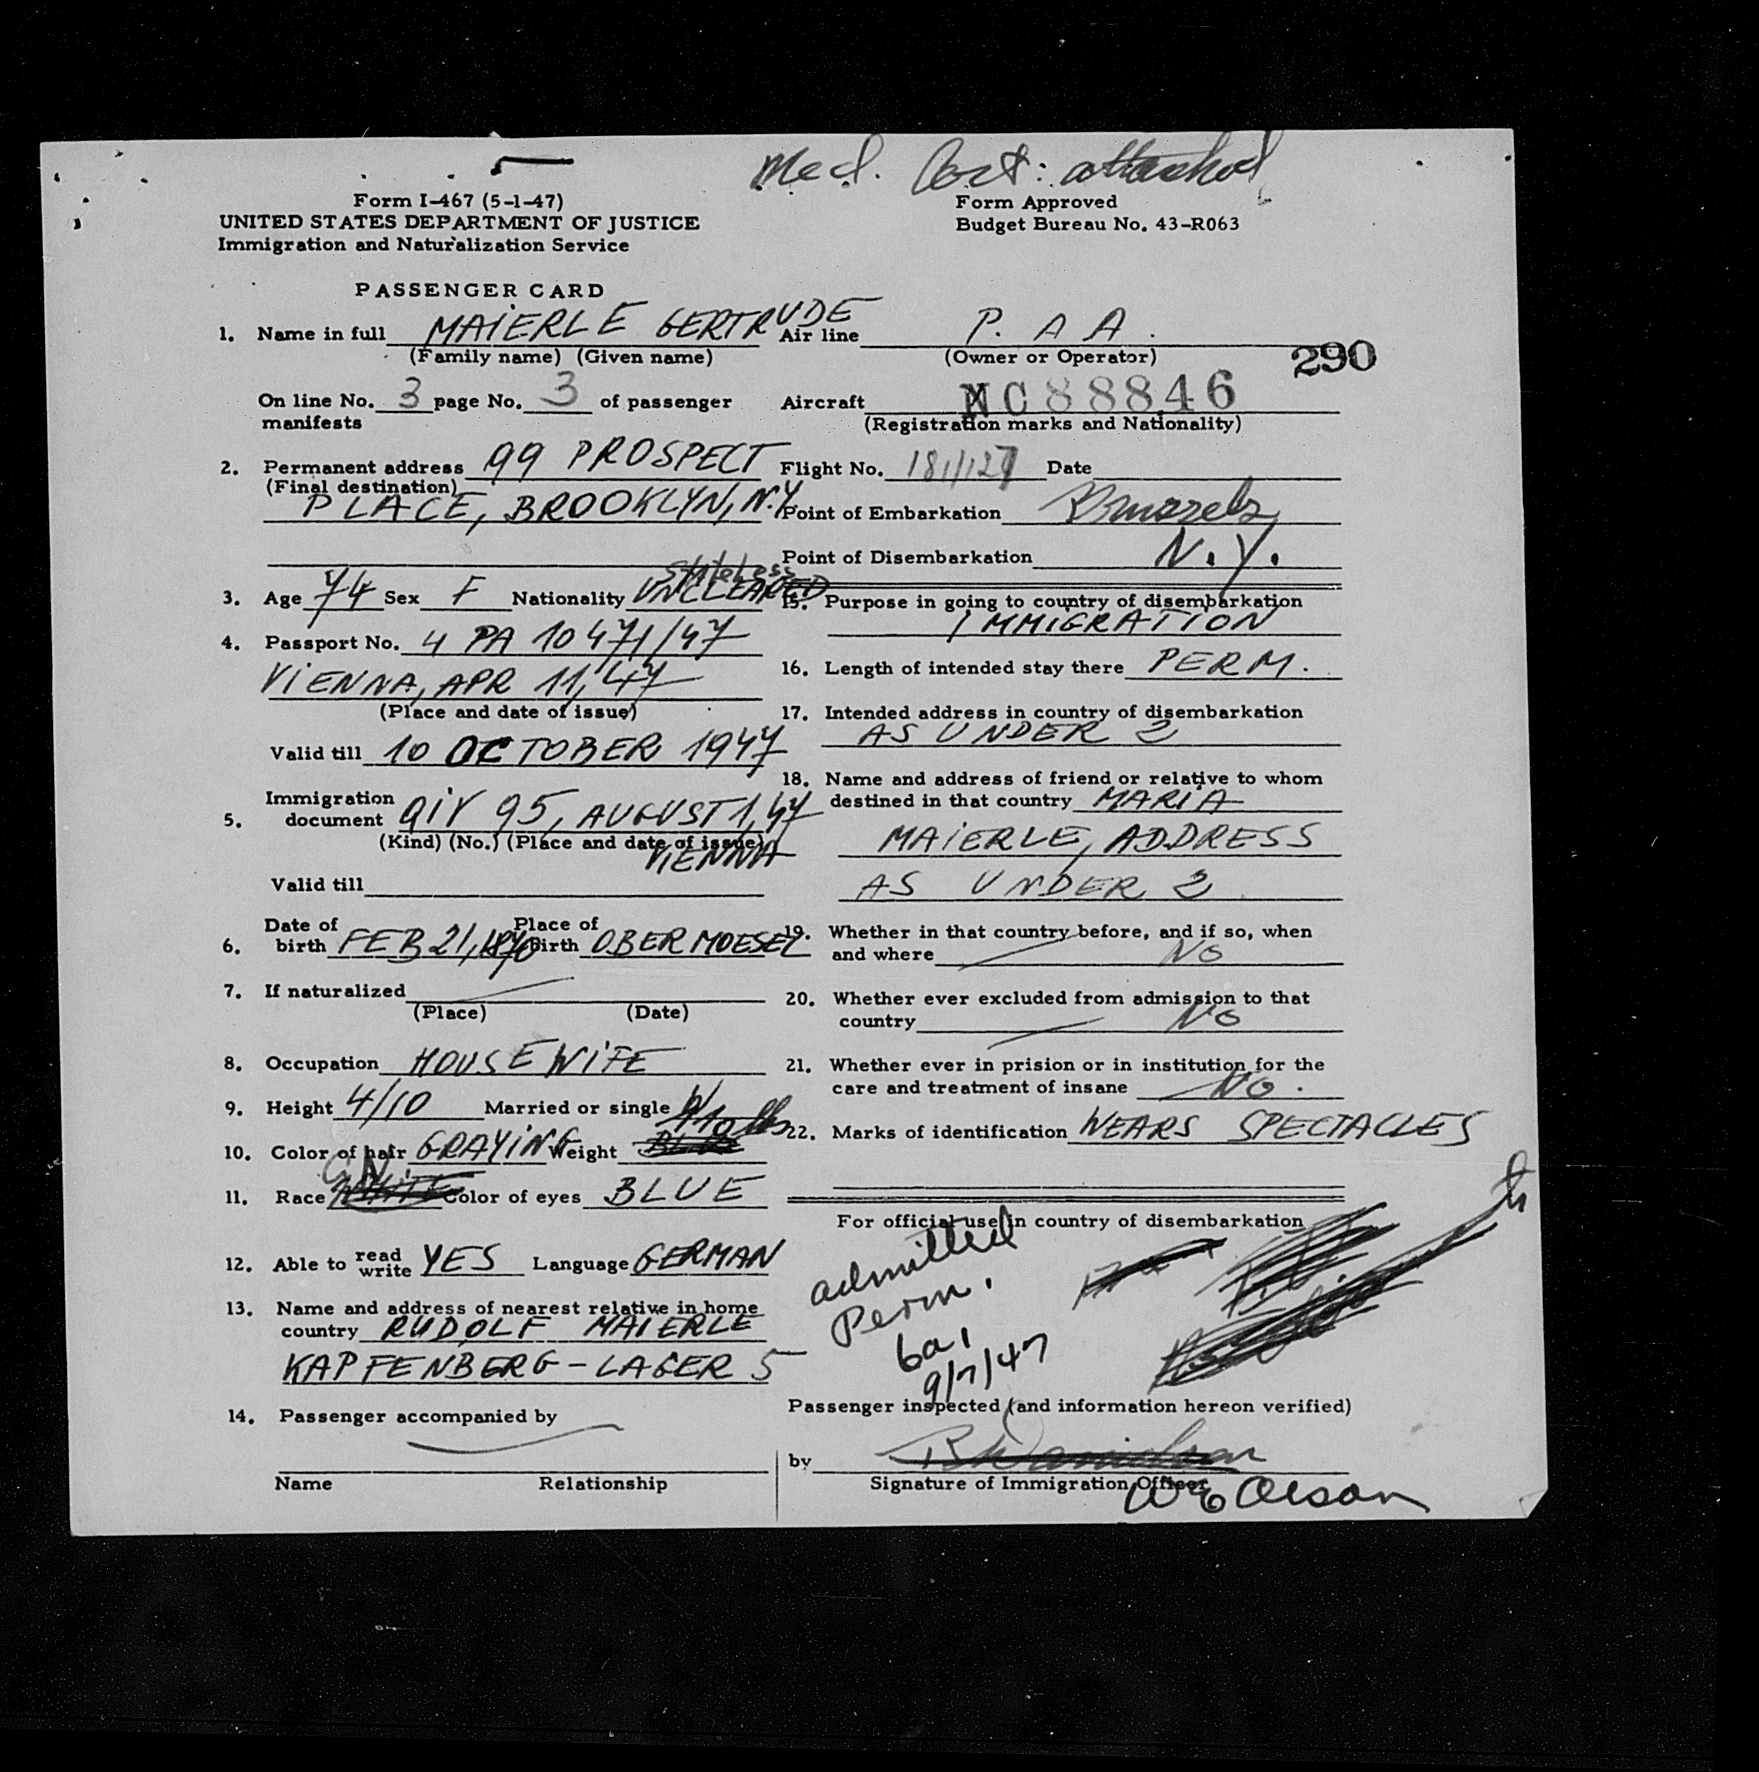 Med. Cert: attached
Form I-467 (5-1-47)
UNITED STATES DEPARTMENT OF JUSTICE
Immigration and Naturalization Service
Form Approved
Budget Bureau No. 43-R063
PASSENGER CARD
1. Name in full MAIERLE GERTRUDE
(Family name) (Given name)
On line No. 3 page No. 3 of passenger
manifests
2. Permanent address 99 PROSPECT
(Final destination)
PLACE, BROOKLYN, N.Y.
stateless
3. Age 74 Sex F Nationality UNCLEARED
4. Passport No. 4 PA 10471/47
VIENNA, APR 11, 47
(Place and date of issue)
Valid till 10 OCTOBER 1947
Immigration
5. document QIV 95, AUGUST 1, 47
(Kind) (No.) (Place and date of issue)
VIENNA
Valid till
Date of Place of
6. birth FEB 21, birth OBERMOESEL
7. If naturalized
(Place) (Date)
8. Occupation HOUSEWIFE
9. Height 4/10 Married or single
110 lbs
10. Color of hair GRAYING Weight
11. Race WHITE Color of eyes BLUE
12. Able to read write YES Language GERMAN
13. Name and address of nearest relative in home
country RUDOLF MAIERLE
KAPFENBERG - LAGER 5
14. Passenger accompanied by
Name Relationship
Air line P. A A.
(Owner or Operator)
290
Aircraft NC88846
(Registration marks and Nationality)
Flight No. Date
Point of Embarkation Brussels
Point of Disembarkation N.Y.
15. Purpose in going to country of disembarkation
IMMIGRATION
16. Length of intended stay there PERM.
17. Intended address in country of disembarkation
AS UNDER 2
18. Name and address of friend or relative to whom
destined in that country MARIA
MAIERLE, ADDRESS
AS UNDER 2
19. Whether in that country before, and if so, when
and where NO
20. Whether ever excluded from admission to that
country NO
21. Whether ever in prision or in institution for the
care and treatment of insane NO.
22. Marks of identification WEARS SPECTACLES
For official use in country of disembarkation
admitted
Perm.
6a1
9/7/47
Passenger inspected (and information hereon verified)
by
Signature of Immigration Officer
W E Olson